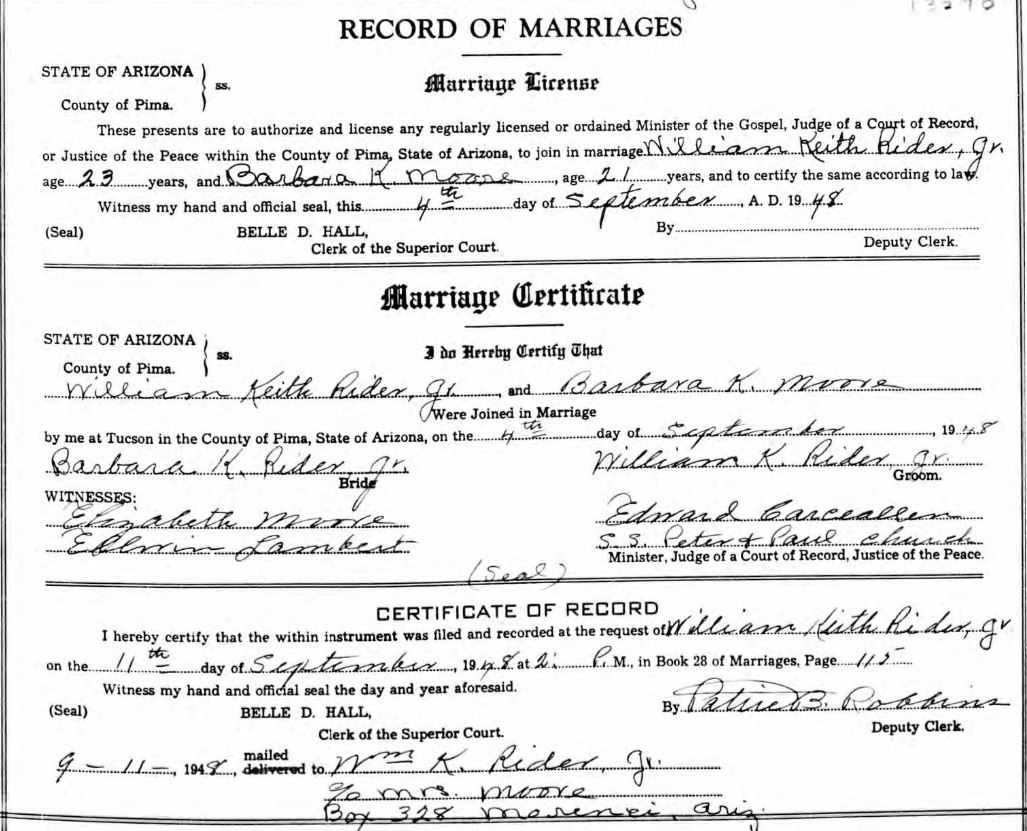 13270
RECORD OF MARRIAGES
STATE OF ARIZONA
County of Pima. } ss.
Marriage License
These presents are to authorize and license any regularly licensed or ordained Minister of the Gospel, Judge of a Court of Record,
or Justice of the Peace within the County of Pima, State of Arizona, to join in marriage William Keith Rider, Jr.
age 23 years, and Barbara K. Moore, age 21 years, and to certify the same according to law.
Witness my hand and official seal, this 4th day of September, A. D. 1948.
(Seal) BELLE D. HALL, By
Clerk of the Superior Court. Deputy Clerk.
Marriage Certificate
STATE OF ARIZONA
County of Pima. } ss.
I do Hereby Certify That
William Keith Rider, Jr. and Barbara K. Moore
Were Joined in Marriage
by me at Tucson in the County of Pima, State of Arizona, on the 4th day of September, 1948
Barbara K. Rider, Jr. William K. Rider, Jr.
Bride Groom.
WITNESSES:
Elizabeth Moore Edward
Edwin Lambert S.S. Peter & Paul Church
Minister, Judge of a Court of Record, Justice of the Peace.
(Seal)
CERTIFICATE OF RECORD
I hereby certify that the within instrument was filed and recorded at the request of William Keith Rider, Jr
on the 11th day of September, 1948 at 2: P. M., in Book 28 of Marriages, Page 115
Witness my hand and official seal the day and year aforesaid.
(Seal) BELLE D. HALL, By B. Robbins
Clerk of the Superior Court. Deputy Clerk.
9-11-, 1948, mailed delivered to Wm K. Rider, Jr.
c/o Mrs. Moore
Box 328 Morenci, Ariz.